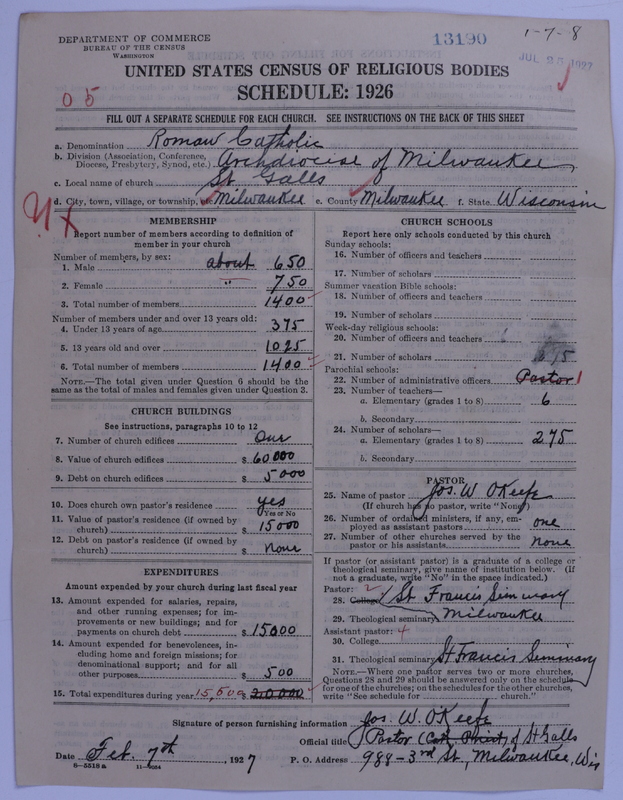 DEPARTMENT OF COMMERCE
BUREAU OF THE CENSUS
WASHINGTON
13190
1-7-8
JUL 25 1927
UNITED STATES CENSUS OF RELIGIOUS BODIES
SCHEDULE: 1926
05
FILL OUT A SEPARATE SCHEDULE FOR EACH CHURCH. SEE INSTRUCTIONS ON THE BACK OF THIS SHEET
a. Denomination Roman Catholic
b. Division (Association, Conference, Diocese, Presbytery, Synod, etc.) Archdiocese of Milwaukee
c. Local name of church St Galls
d. City, town, village, or township, etc. Milwaukee e. County Milwaukee f. State Wisconsin
MEMBERSHIP
Report number of members according to definition of
member in your church
Number of members, by sex:
1. Male about 650
2. Female " 750
3. Total number of members 1400
Number of members under and over 13 years old:
4. Under 13 years of age 375
5. 13 years old and over 1025
6. Total number of members 1400
NOTE.—The total given under Question 6 should be the
same as the total of males and females given under Question 3.
CHURCH BUILDINGS
See instructions, paragraphs 10 to 12
7. Number of church edifices One
8. Value of church edifices $ 60000
9. Debt on church edifices $ 5000
10. Does church own pastor's residence yes
Yes or No
11. Value of pastor's residence (if owned by
church) $ 15000
12. Debt on pastor's residence (if owned by
church) $ None
EXPENDITURES
Amount expended by your church during last fiscal year
13. Amount expended for salaries, repairs,
and other running expenses; for im-
provements or new buildings; and for
payments on church debt $ 15000
14. Amount expended for benevolences, in-
cluding home and foreign missions; for
denominational support; and for all
other purposes $ 500
15. Total expenditures during year 15,500 $ 20000
CHURCH SCHOOLS
Report here only schools conducted by this church
Sunday schools:
16. Number of officers and teachers
17. Number of scholars
Summer vacation Bible schools:
18. Number of officers and teachers
19. Number of scholars
Week-day religious schools:
20. Number of officers and teachers
21. Number of scholars
Parochial schools:
22. Number of administrative officers Pastor 1
23. Number of teachers—
a. Elementary (grades 1 to 8) 6
b. Secondary
24. Number of scholars—
a. Elementary (grades 1 to 8) 275
b. Secondary
PASTOR
25. Name of pastor Jos. W OKeefe
(If church has no pastor, write "None")
26. Number of ordained ministers, if any, em-
ployed as assistant pastors one
27. Number of other churches served by the
pastor or his assistants none
If pastor (or assistant pastor) is a graduate of a college or
theological seminary, give name of institution below. (If
not a graduate, write "No" in the space indicated.)
Pastor: 2
28. College St Francis Seminary
29. Theological seminary Milwaukee
Assistant pastor: 4
30. College
31. Theological seminary St Francis Seminary
NOTE.—Where one pastor serves two or more churches,
Questions 28 and 29 should be answered only on the schedule
for one of the churches; on the schedules for the other churches,
write "See schedule for church."
Signature of person furnishing information Jos. W. OKeefe
Official title Pastor (Cath Priest) of St Galls
Date Feb. 7th, 1927
P. O. Address 988-3rd St., Milwaukee, Wis
8-5518a 11-9034